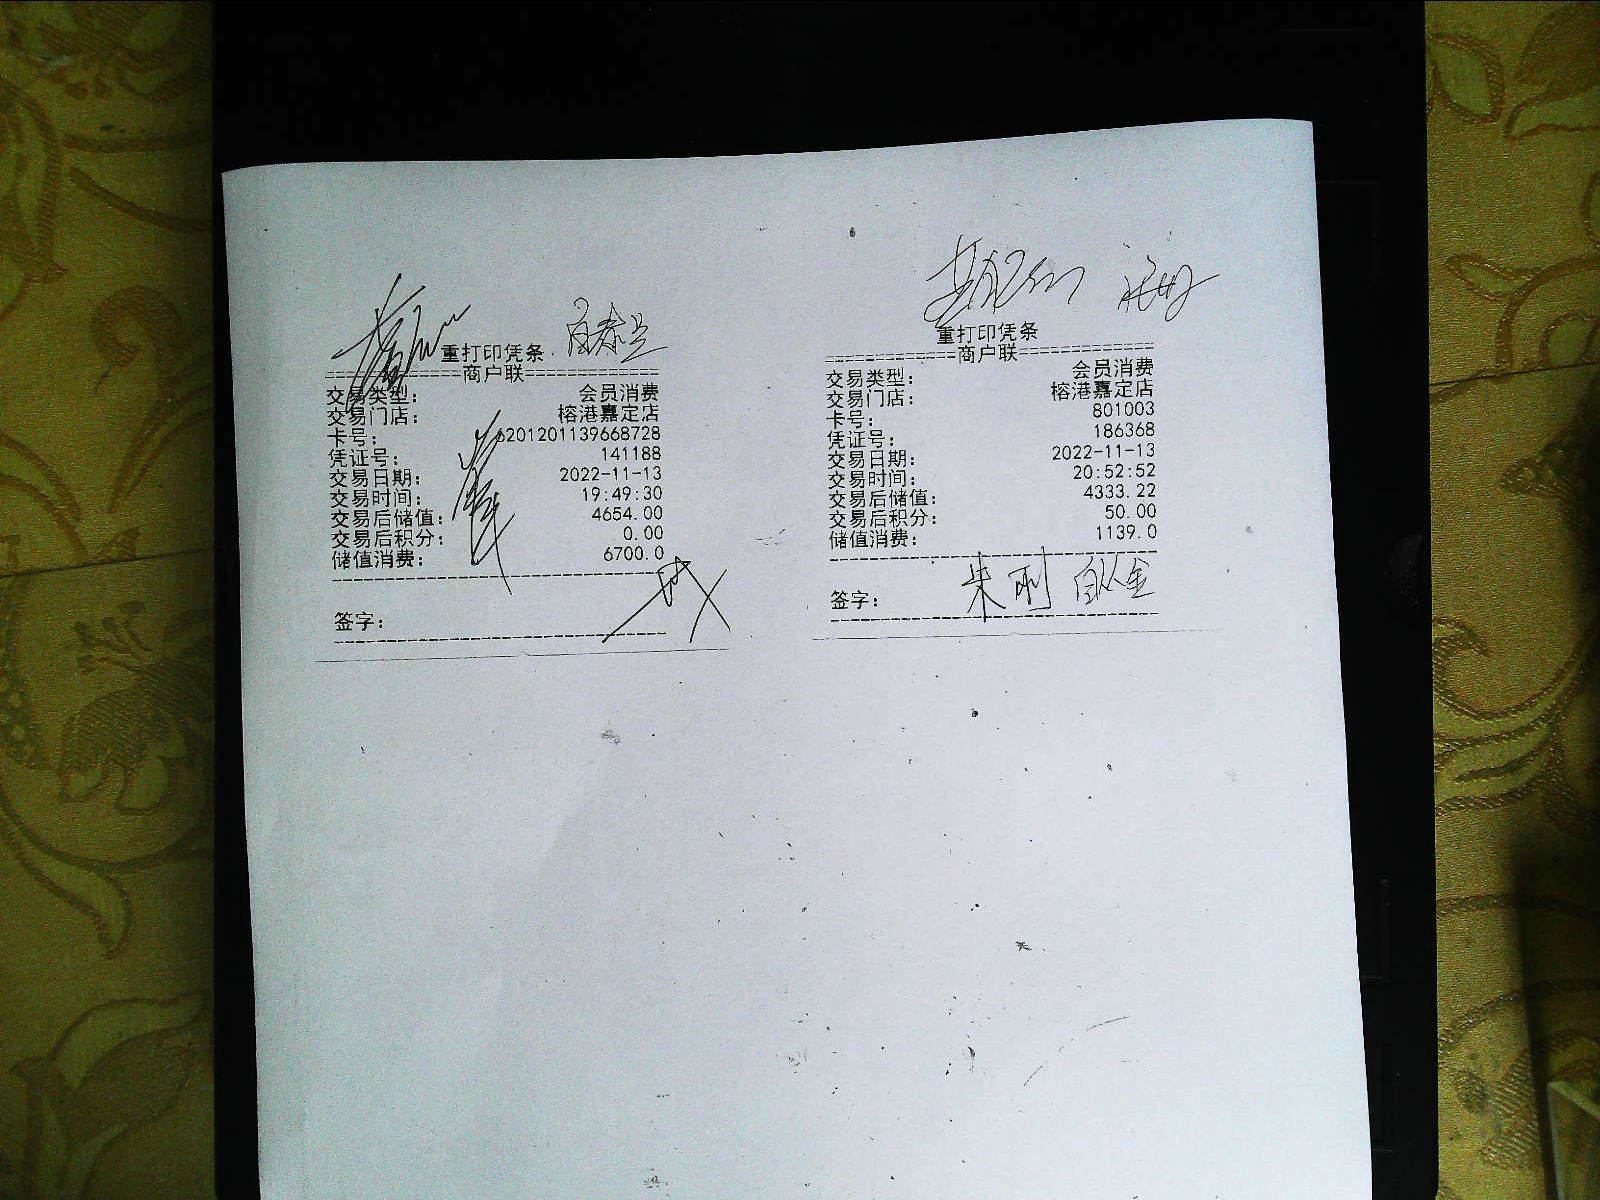 重打印凭条
商户联
交易类型： 会员消费
交易门店： 榕港嘉定店
卡号： 6201201139668728
凭证号： 141188
交易日期： 2022-11-13
交易时间： 19:49:30
交易后储值： 4654.00
交易后积分： 0.00
储值消费： 6700.0
签字：
重打印凭条
商户联
交易类型： 会员消费
交易门店： 榕港嘉定店
卡号： 801003
凭证号： 186368
交易日期： 2022-11-13
交易时间： 20:52:52
交易后储值： 4333.22
交易后积分： 50.00
储值消费： 1139.0
签字： 朱刚